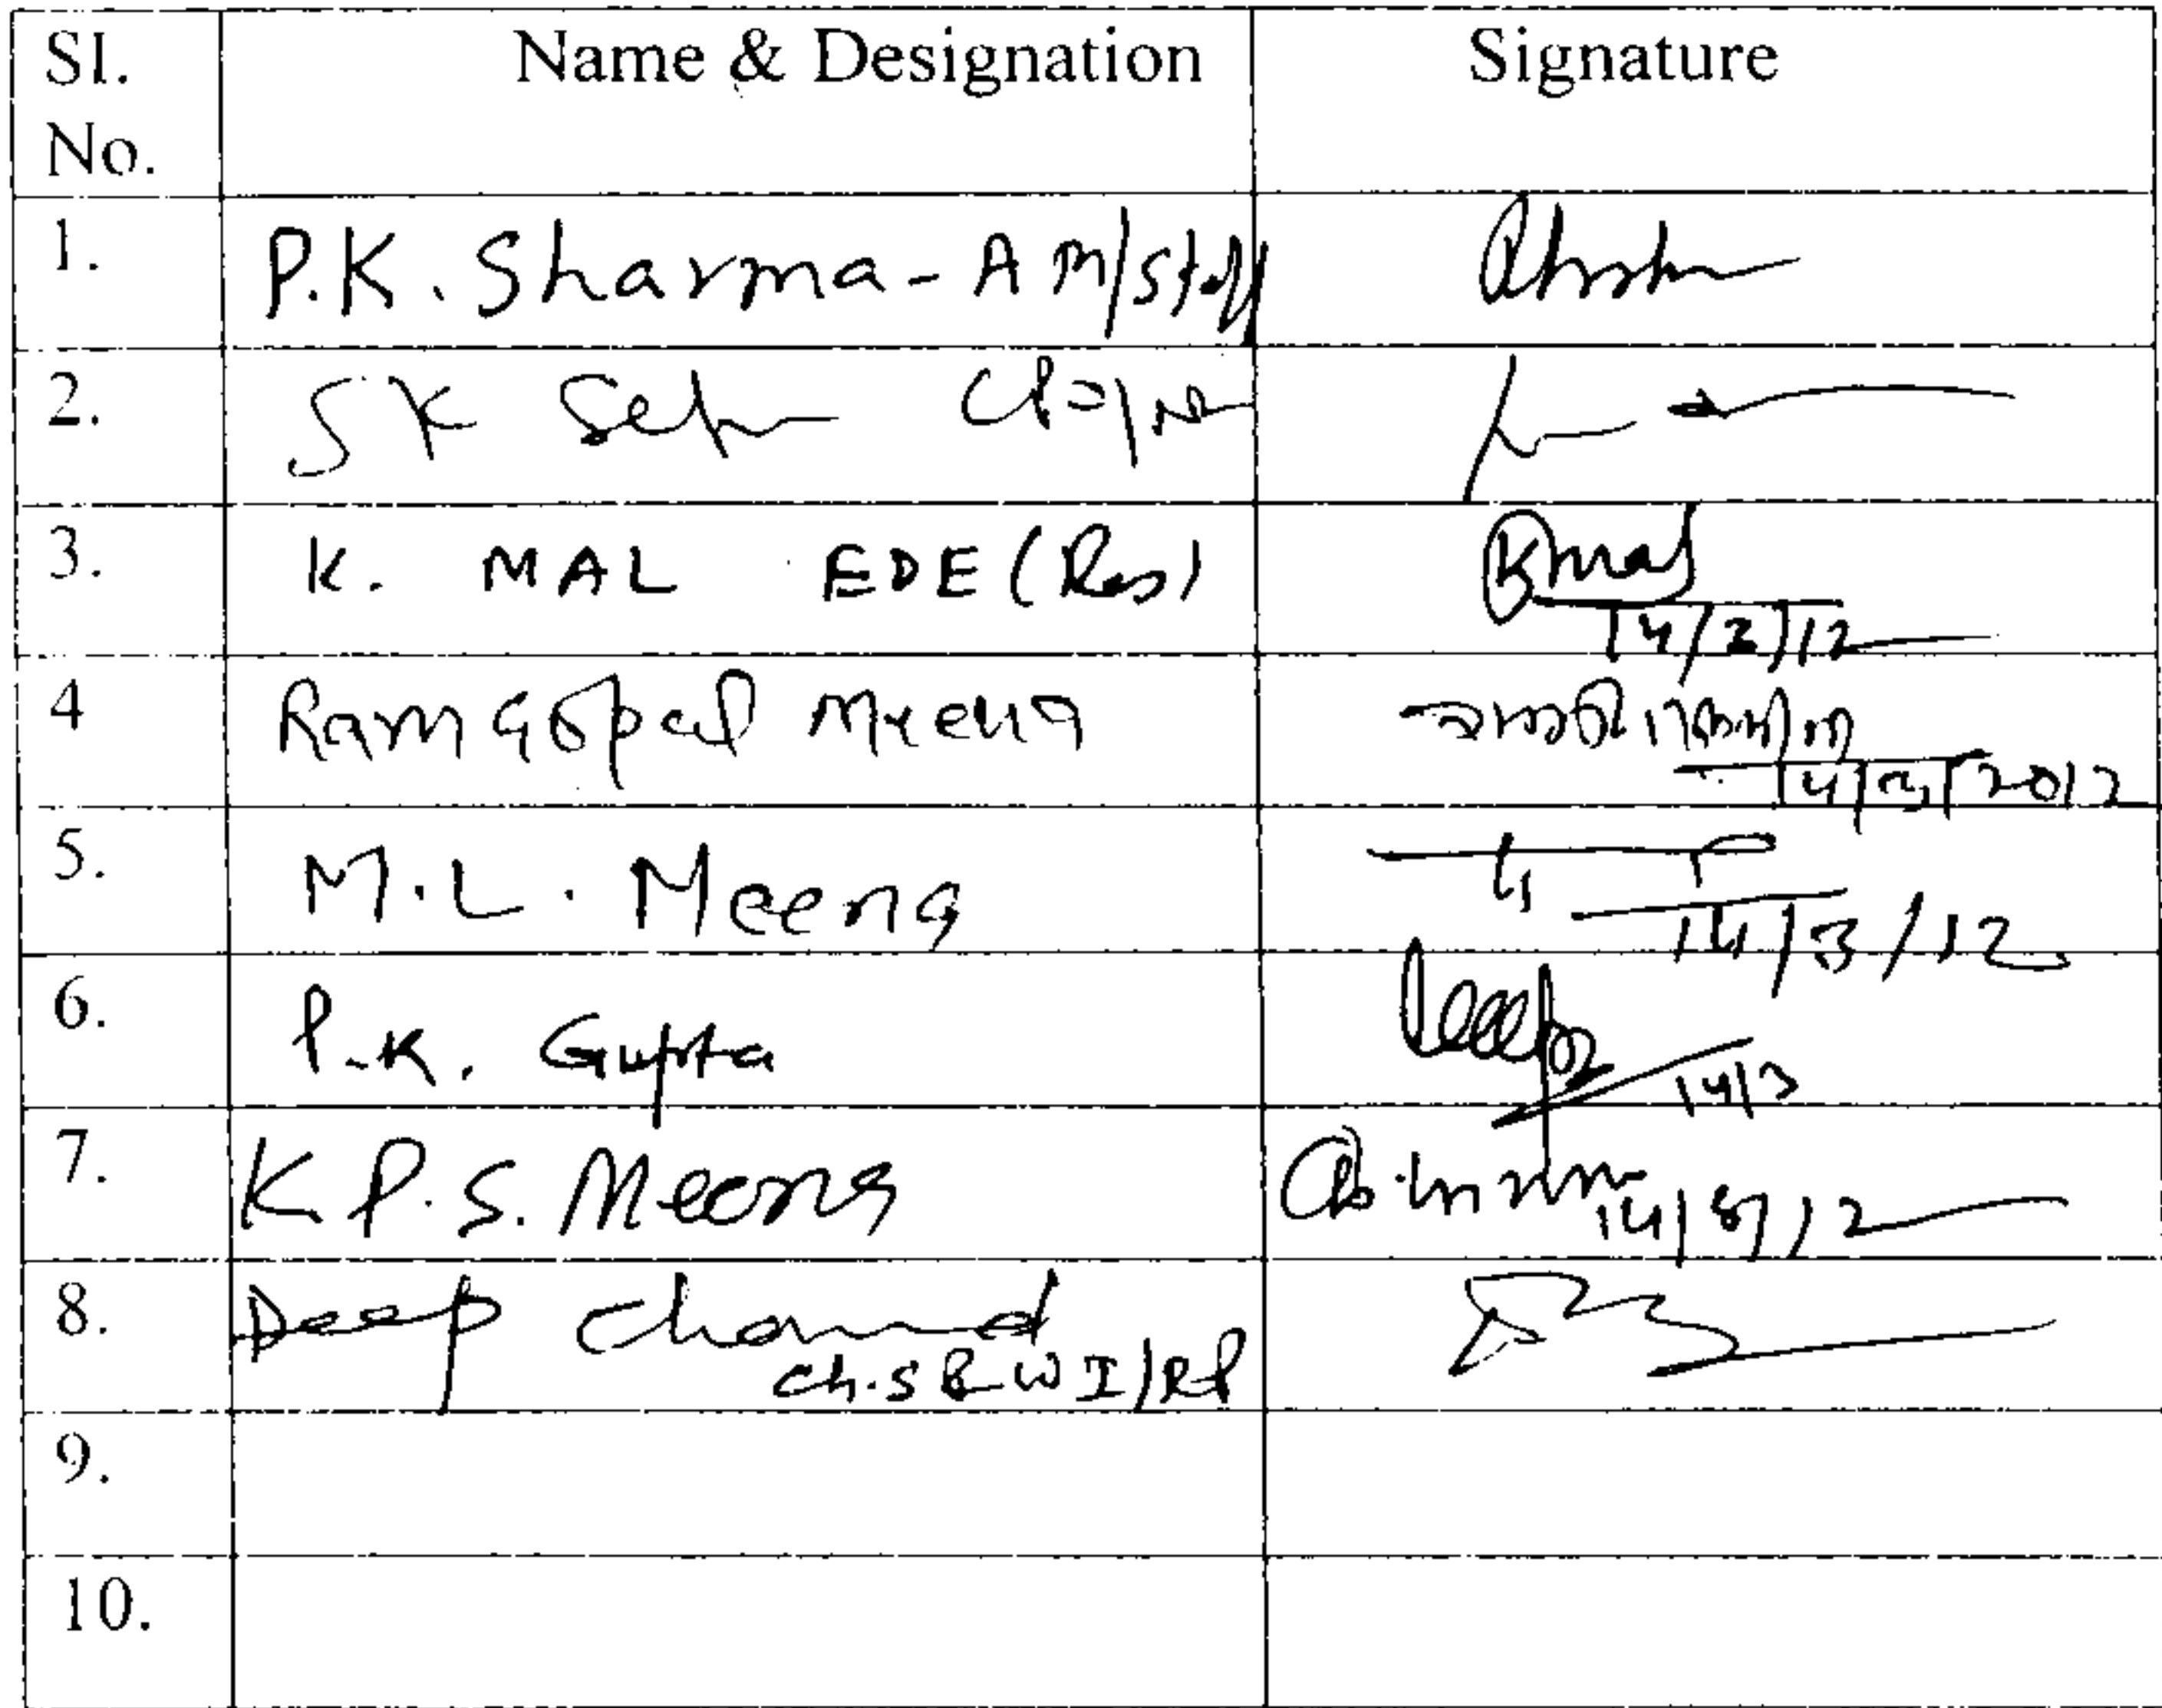 Sl. No. Name & Designation Signature
1. P.K. Sharma - AM/Staff
2. SK
3. K. MAL EDE (Res) Kmal
14/3/12
4 Ramgopal Meena
14/3/2012
5. M.L. Meena
14/3/12
6. P.K. Gupta
14/3
7. K P.S. Meena
14/3/12
8. Deep Chand
Ch. S & W I/RP
9.
10.